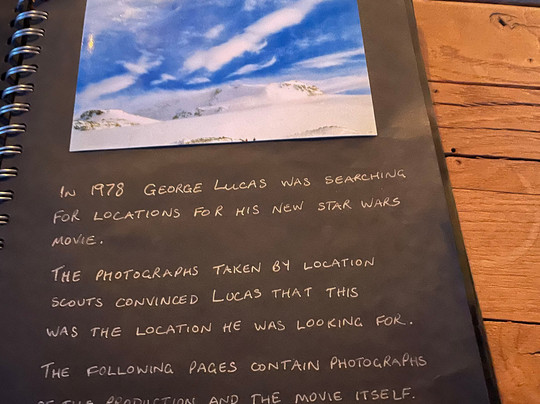 IN 1978 GEORGE LUCAS WAS SEARCHING
FOR LOCATIONS FOR HIS NEW STAR WARS
MOVIE.
THE PHOTOGRAPHS TAKEN BY LOCATION
SCOUTS CONVINCED LUCAS THAT THIS
WAS THE LOCATION HE WAS LOOKING FOR.
THE FOLLOWING PAGES CONTAIN PHOTOGRAPHS
OF THE PRODUCTION AND THE MOVIE ITSELF.